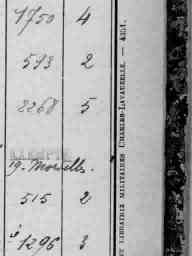 1750 4
593 2
2268 5
EXEMPTÉ
19. Morcells.
515 2
1296 3
LIBRAIRIE MILITAIRES CHARLES-LAVAUZELLE. — 4251.